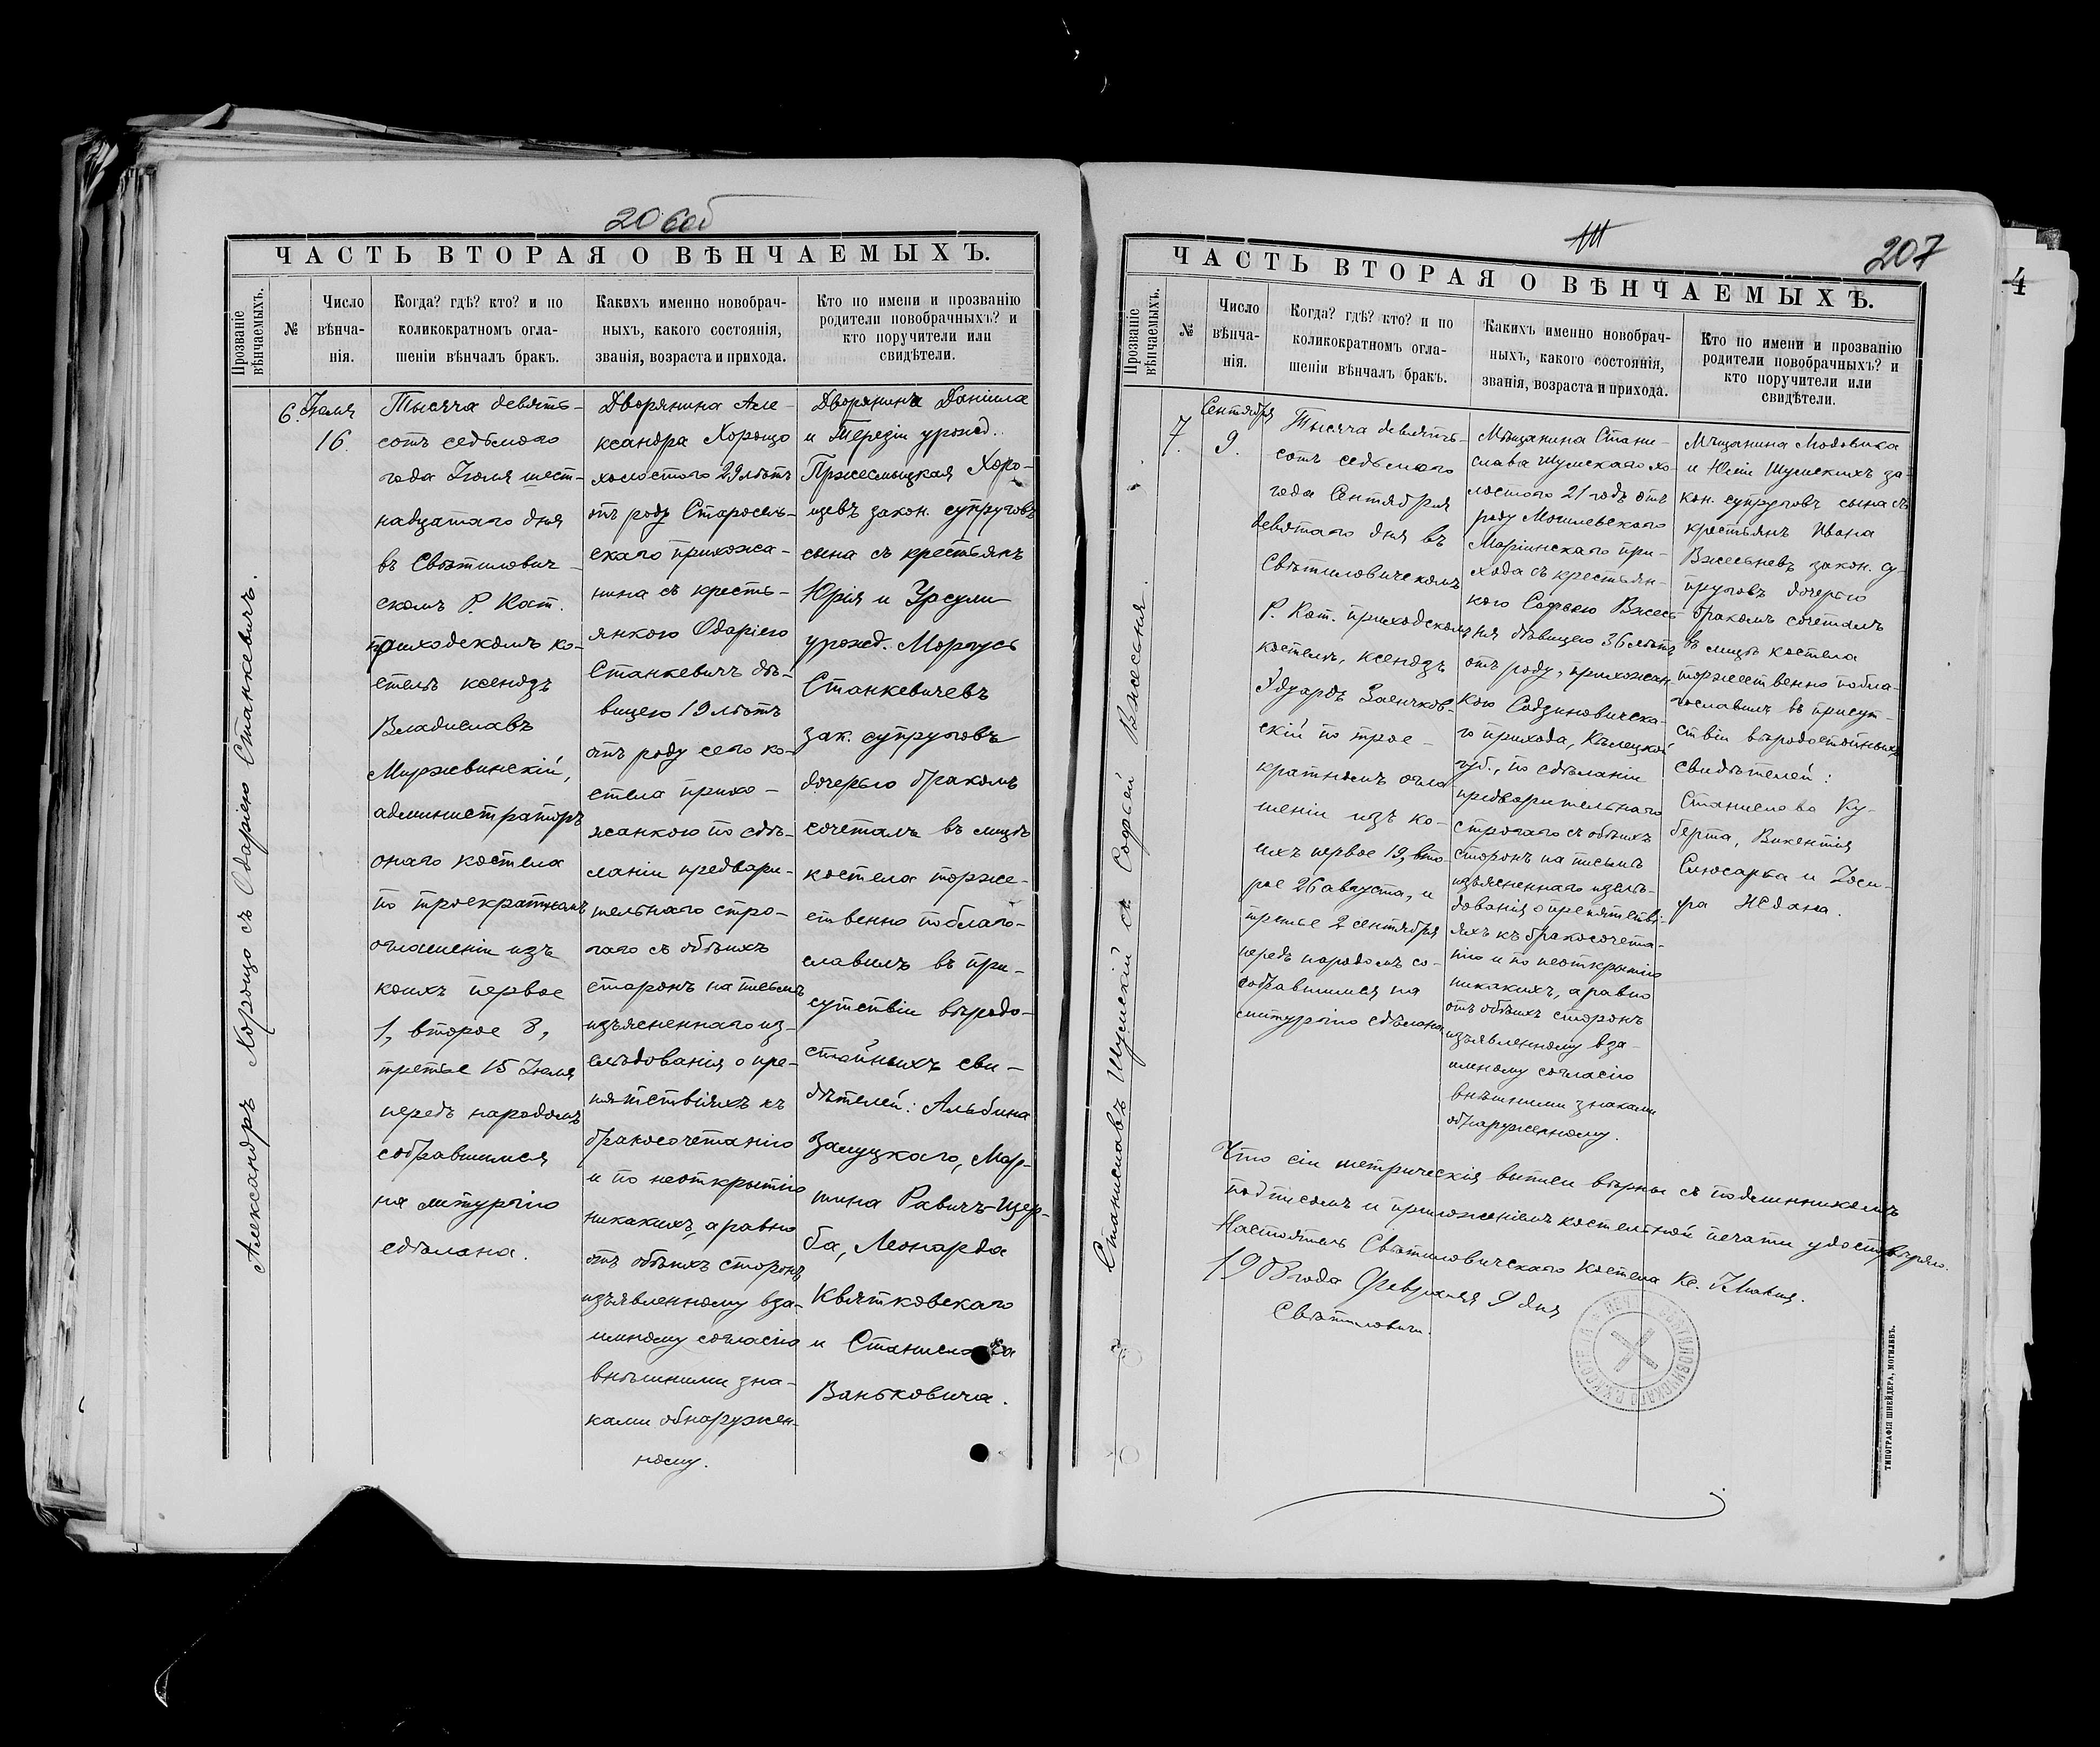 206 об
ЧАСТЬ ВТОРАЯ О ВѢНЧАЕМЫХЪ.
Прозваніе
вѣнчаемыхъ.
№
Число
вѣнча-
нія.
Когда? гдѣ? кто? и по
коликократномъ огла-
шеніи вѣнчалъ бракъ.
Какихъ именно новобрач-
ныхъ, какого состоянія,
званія, возраста и прихода.
Кто по имени и прозванію
родители новобрачныхъ? и
кто поручители или
свидѣтели.
Александръ Хорощо съ Одаріею Станкевичъ.
6.
Іюля
16.
Тысяча девять-
сотъ седьмого
года Іюля шест-
надцатаго дня
въ Свѣтилович-
скомъ Р. Кат.
приходскомъ ко-
стелѣ ксендзъ
Владиславъ
Миржвинскій,
администраторъ
онаго костела
по троекратномъ
оглашеніи изъ
коихъ первое
1, второе 8,
третье 15 Іюля
передъ народомъ
собравшимся
на литургію
сдѣлана.
Дворянина Але-
ксандра Хорощо
холостого 29 лѣтъ
отъ роду Старосель-
скаго прихожа-
нина съ кресть-
янкою Одаріею
Станкевичъ дѣ-
вицею 19 лѣтъ
отъ роду сего ко-
стела прихо-
жанкою по сдѣ-
ланіи предвари-
тельнаго стро-
гаго съ обѣихъ
сторонъ на письмѣ
изъясненнаго из-
слѣдованія о пре-
пятствіяхъ къ
бракосочетанію
и по неоткрытію
никакихъ, а равно
отъ обѣихъ сторонъ
изъявленному вза-
имному согласію
внѣшними зна-
ками обнаружен-
ному.
Дворянина Даніила
и Терезіи урожд.
Пржесмыцкая Хоро-
щевъ закон. супруговъ
сына съ крестьянъ
Юрія и Урсули
урожд. Моргусь
Станкевичевъ
зак. супруговъ
дочерью бракомъ
сочеталъ въ лицѣ
костела торже-
ственно поблаго-
славилъ въ при-
сутствіи вѣродо-
стойныхъ сви-
дѣтелей: Альбина
Залуцкаго, Мар-
тина Равичъ-Щер-
ба, Леонарда
Квятковскаго
и Станислава
Ваньковича.
207
4
ЧАСТЬ ВТОРАЯ О ВѢНЧАЕМЫХЪ.
Прозваніе
вѣнчаемыхъ.
№
Число
вѣнча-
нія.
Когда? гдѣ? кто? и по
коликократномъ огла-
шеніи вѣнчалъ бракъ.
Какихъ именно новобрач-
ныхъ, какого состоянія,
званія, возраста и прихода.
Кто по имени и прозванію
родители новобрачныхъ? и
кто поручители или
свидѣтели.
Станиславъ Шумскій съ Софьей Вжесьня.
7.
Сентября
9.
Тысяча девять-
сотъ седьмого
года Сентября
девятаго дня въ
Свѣтиловичскомъ
Р. Кат. приходскомъ
костелѣ, ксендзъ
Эдуардъ Заенчков-
скій по трое-
кратномъ огла-
шеніи изъ ко-
ихъ первое 19, вто-
рое 26 августа, и
третье 2 сентября
передъ народомъ со-
собравшимся на
литургію сдѣлана
Мѣщанина Стани-
слава Шумскаго хо-
лостого 21 годъ отъ
роду Могилевскаго
Маріинскаго при-
хода съ крестьян-
кою Софьею Вжесь-
ня дѣвицею 36 лѣтъ
отъ роду, прихожан-
кою Содзиновическа-
го прихода, Кѣлецкой
губ., по сдѣланіи
предварительнаго
строгаго съ обѣихъ
сторонъ на письмѣ
изъясненнаго изслѣ-
дованія о препятстві-
яхъ къ бракосочета-
нію и по неоткрытію
никакихъ, а равно
отъ обѣихъ сторонъ
изъявленному вза-
имному согласію
внѣшними знаками
обнаруженному.
Мѣщанина Людовика
и Юліи Шумскихъ за-
кон. супруговъ сына съ
крестьянъ Ивана
Вжесьневъ закон. су-
пруговъ дочерью
бракомъ сочеталъ
въ лицѣ костела
торжественно побла-
гославилъ въ присут-
ствіи вѣродостойныхъ
свидѣтелей:
Станислава Ку-
берта, Викентія
Слюсарба и Іоси-
фа Ждана.
Что сіи метрическія выписи вѣрны съ подлинникомъ
подписомъ и приложеніемъ костельной печати удостовѣряю.
Настоятель Свѣтиловичскаго Костела Кс.
1908 года Февраля 9 дня
Свѣтиловичи.
ТИПОГРАФІЯ ШНЕЙДЕРА, МОГИЛЕВЪ.